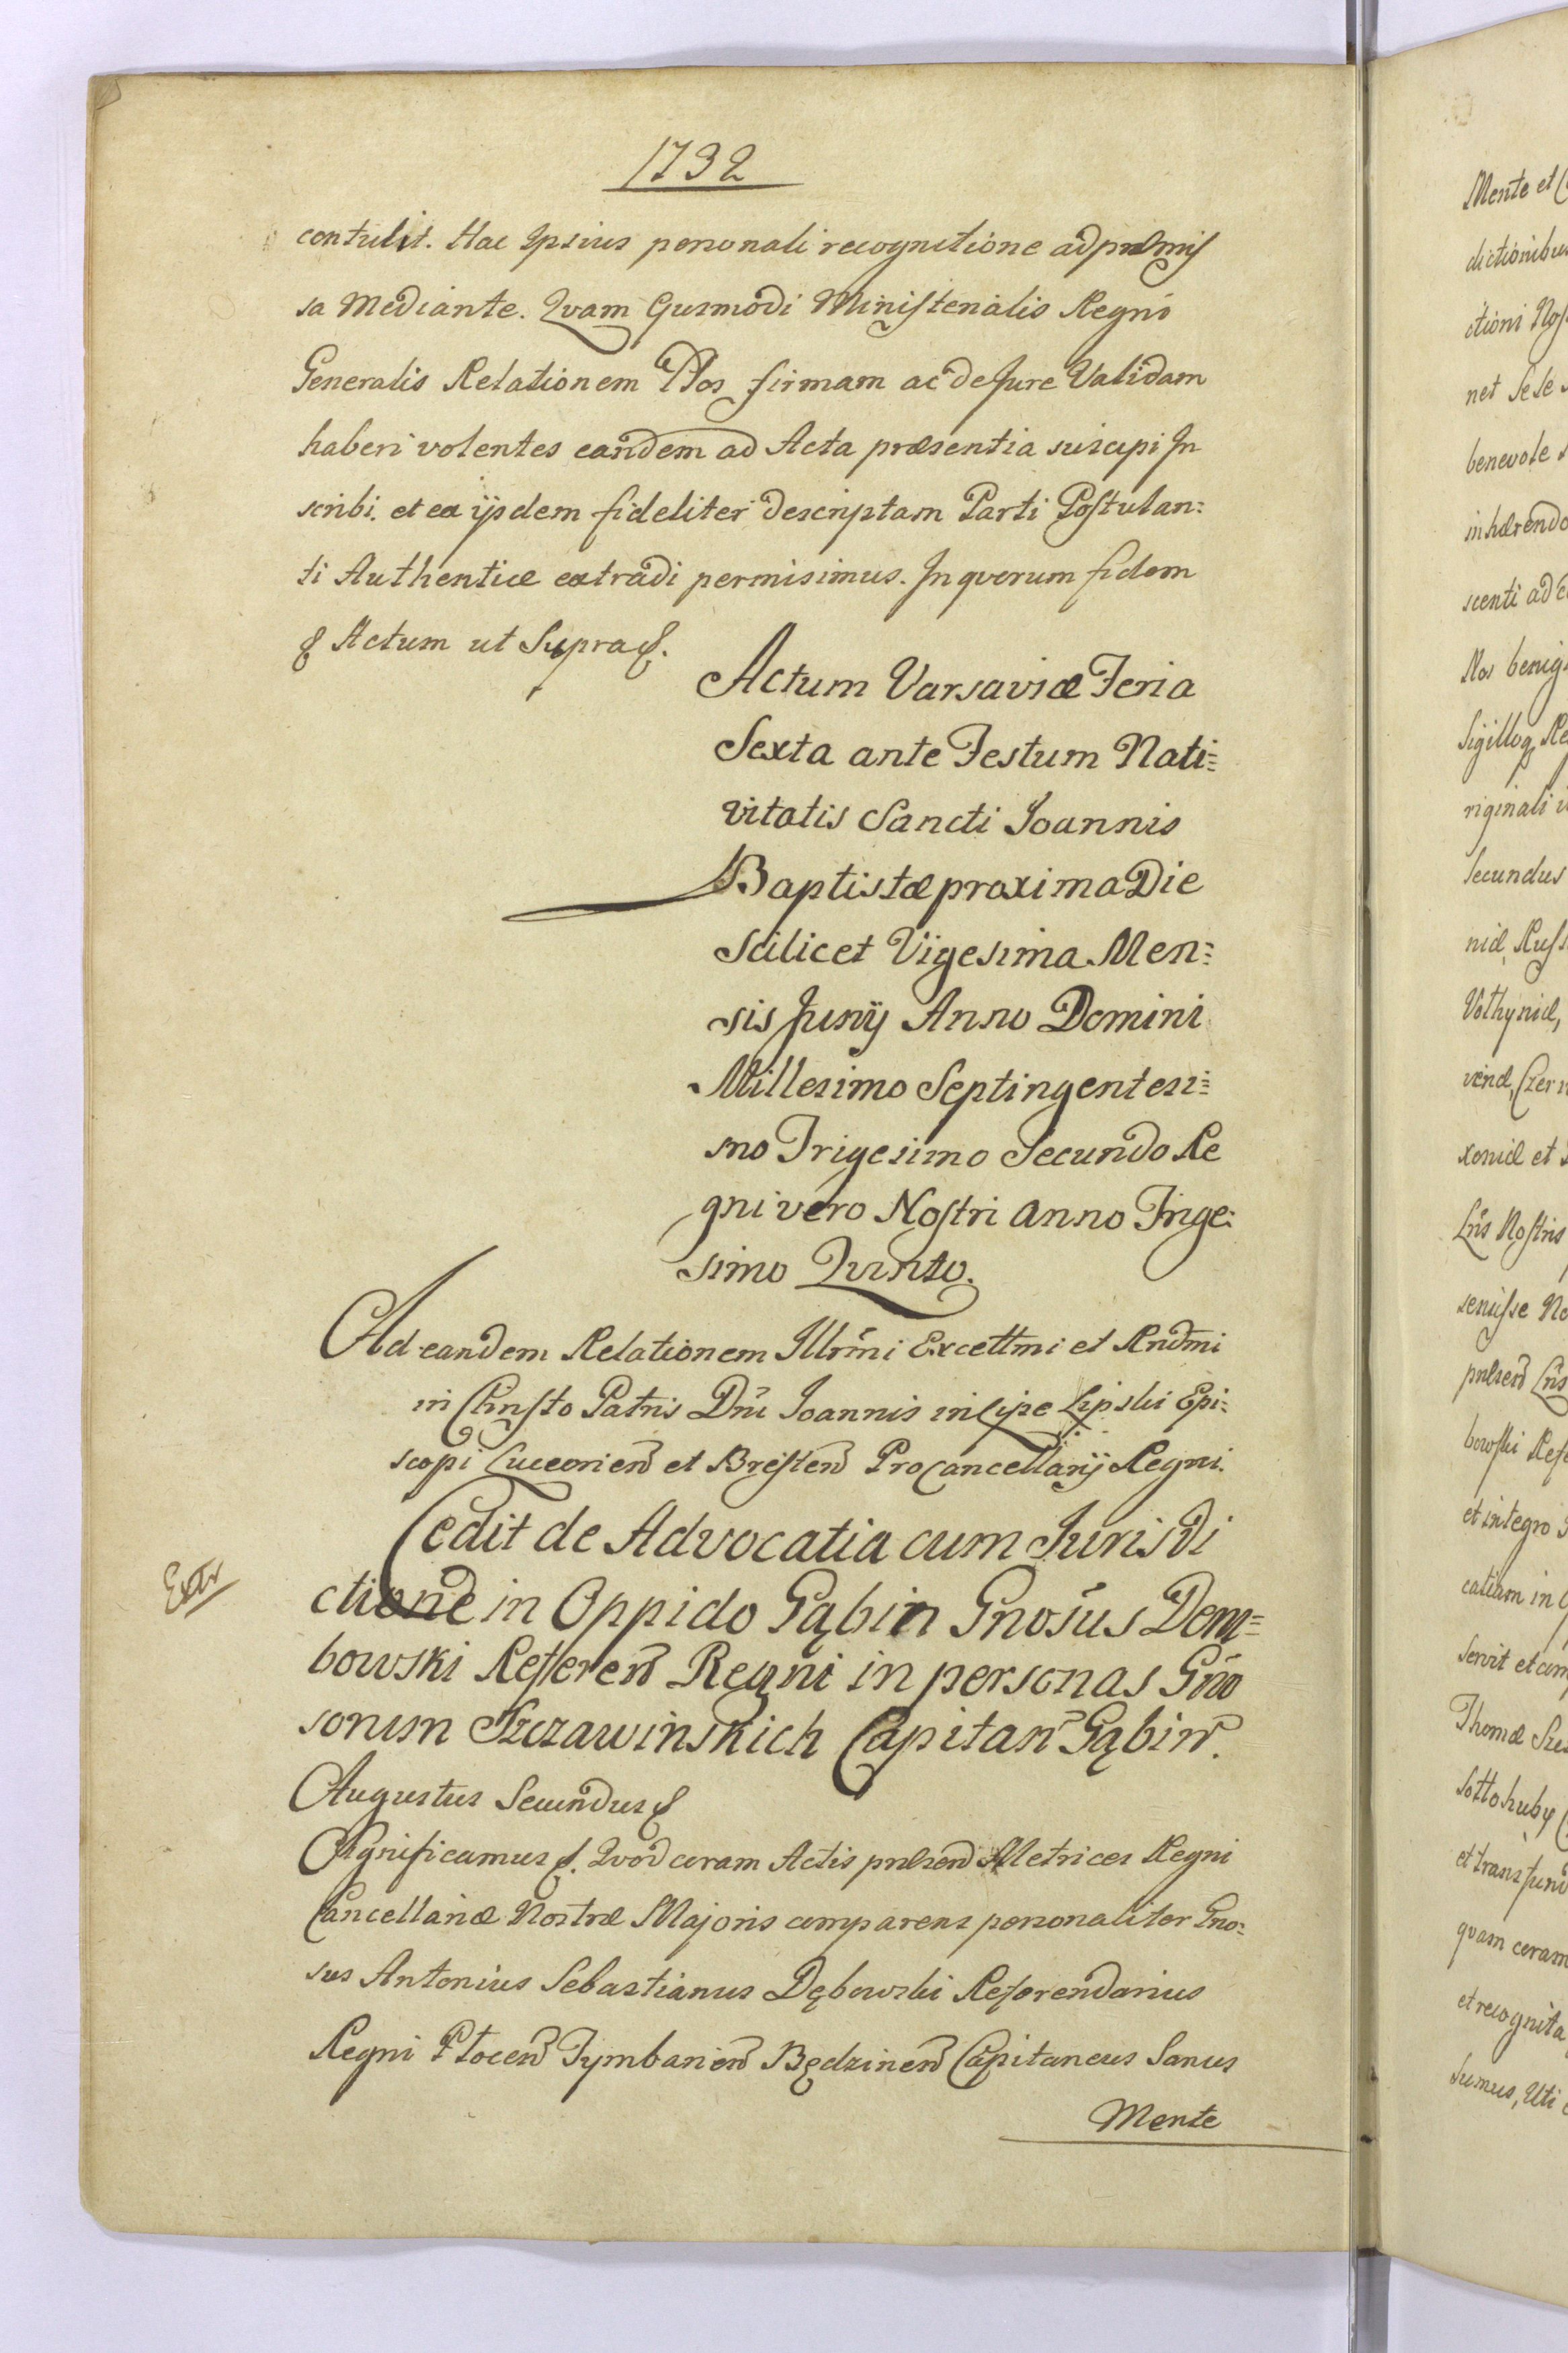 1732
contulit. Hac Ipsius personali recognitione ad præmis
sa Mediante. Qvam Gusmodi Ministerialis Regni
Generalis Relationem Nos firmam ac de Jure Validam
haberi volentes eandem ad Acta præsentia suscipi In
scribi. et ex ijsdem fideliter descriptam Parti Postulan=
ti Authentice extradi permisimus. In qvorum fidem
& Actum ut Supra &.
Actum Varsaviæ Feria
Sexta ante Festum Nati=
vitatis Sancti Joannis
Baptistæ proxima Die
Scilicet Vigesima Men=
sis Junÿ Anno Domini
Millesimo Septingentesi=
mo Trigesimo Secundo Re
gni vero Nostri Anno Trige=
simo Qvinto.
Ad eandem Relationem Illrmi Excellmi et Rndmi
in Christo Patris Dni Joannis in Lipe Lipski Epi=
scopi Luceorien et Bresten ProCancellarij Regni.
Cedit de Advocatia cum Jurisdi
Extr
ctione in Oppido Gąbin Gnosus Dem=
bowski Referen Regni in personas Gno
sorum Szczawinskich Capitan Gąbin.
Augustus Secundus &
Significamus &. Qvod coram Actis præsen Metrices Regni
Cancellariæ Nostræ Majoris comparens personaliter Gno=
sus Antonius Sebastianus Dębowski Referendarius
Regni Płocen Tymbarien Będzinen Capitaneus Sanus
Mente
Mente et
dictionibus
ctioni
net sese
benevole
inhærendo
scenti ad
Nos
Sigilloq
riginali
Secundus
niæ,
Volhyniæ,
xoniæ et
Lris Nostris
bowski
et integro
in
servit et
Thomæ
quam coram
et recognita
sumus, Uti